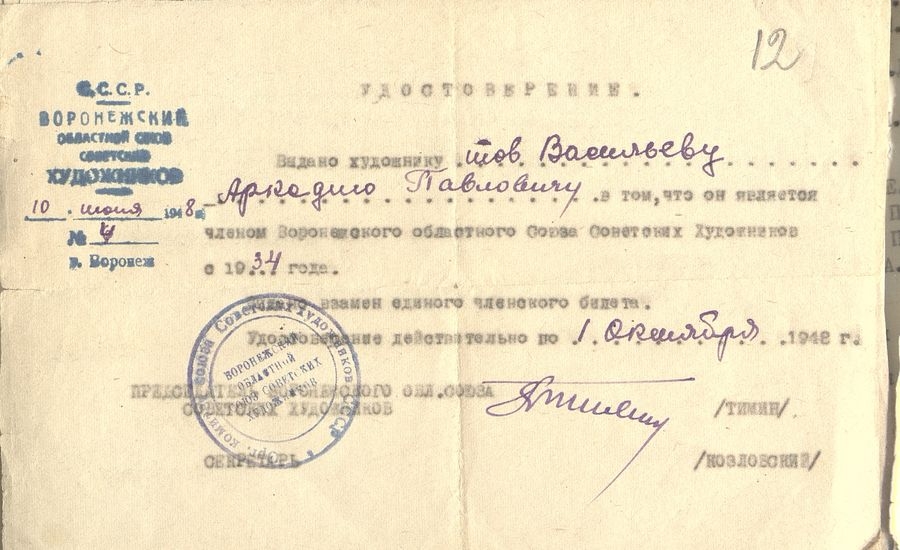 12
С.С.С.Р.
ВОРОНЕЖСКИЙ
ОБЛАСТНОЙ СОЮЗ
СОВЕТСКИХ
ХУДОЖНИКОВ
10 . июня 1948 г.
№ 4
г. Воронеж
УДОСТОВЕРЕНИЕ.
Выдано художнику тов Васильеву
Аркадию Павловичу в том, что он является
членом Воронежского областного Союза Советских Художников
с 1934 года.
взамен единого членского билета.
Удостоверение действительно по 1 Октября 1948 г.
ПРЕДСЕДАТЕЛЬ ВОРОНЕЖСКОГО ОБЛ.СОЮЗА
СОВЕТСКИХ ХУДОЖНИКОВ
/ТИМИН/.
СЕКРЕТАРЬ
/КОЗЛОВСКИЙ/
Союза Советских Художников СССР
ВОРОНЕЖСКИЙ
ОБЛАСТНОЙ
СОЮЗ СОВЕТСКИХ
ХУДОЖНИКОВ